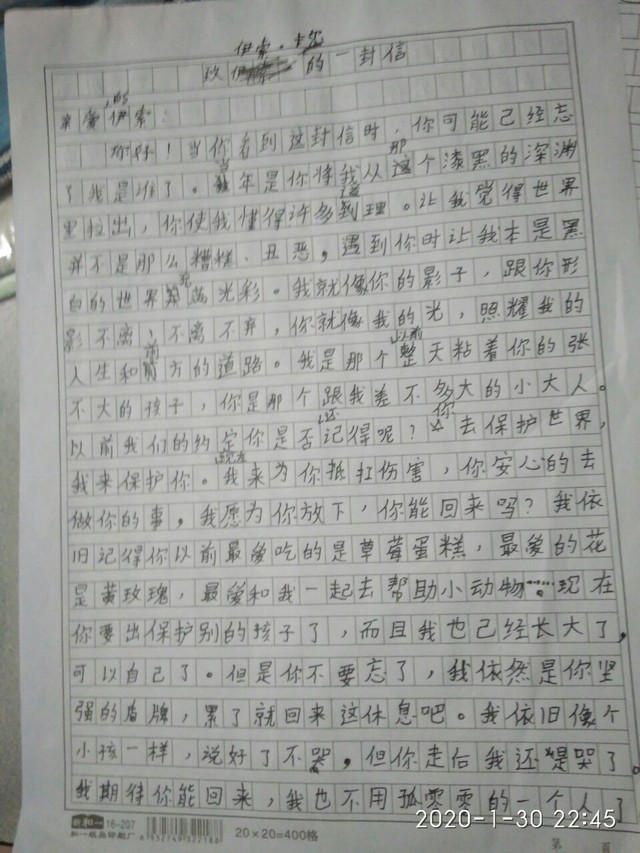 伊索·卡尔
致的一封信
亲爱的伊索:
你好!当你看到这封信时,你可能已经忘
了我是谁了。当年是你将我从那个漆黑的深渊
里拉出,你使我懂得许多道理。让我觉得世界
并不是那么糟糕、丑恶,遇到你时让我本是黑
白的世界充满光彩。我就像你的影子,跟你形
影不离,不离不弃,你就像我的光,照耀我的
人生和前方的道路。我是那个以前整天粘着你的张
不大的孩子,你是那个跟我差不多大的小大人。
以前我们的约定你是否还记得呢?你去保护世界,
我来保护你。现在我来为你抵扛伤害,你安心的去
做你的事,我愿为你放下,你能回来吗?我依
旧记得你以前最爱吃的是草莓蛋糕,最爱的花
是黄玫瑰,最爱和我一起去帮助小动物……现在
你要出保护别的孩子了,而且我也已经长大了,
可以自己了。但是你不要忘了,我依然是你坚
强的盾牌,累了就回来这休息吧。我依旧像个
小孩一样,说好了不哭,但你走后我还是哭了。
我期待你能回来,我也不用孤零零的一个人了
16-207
20×20=400格
第 页
2020-1-30 22:45